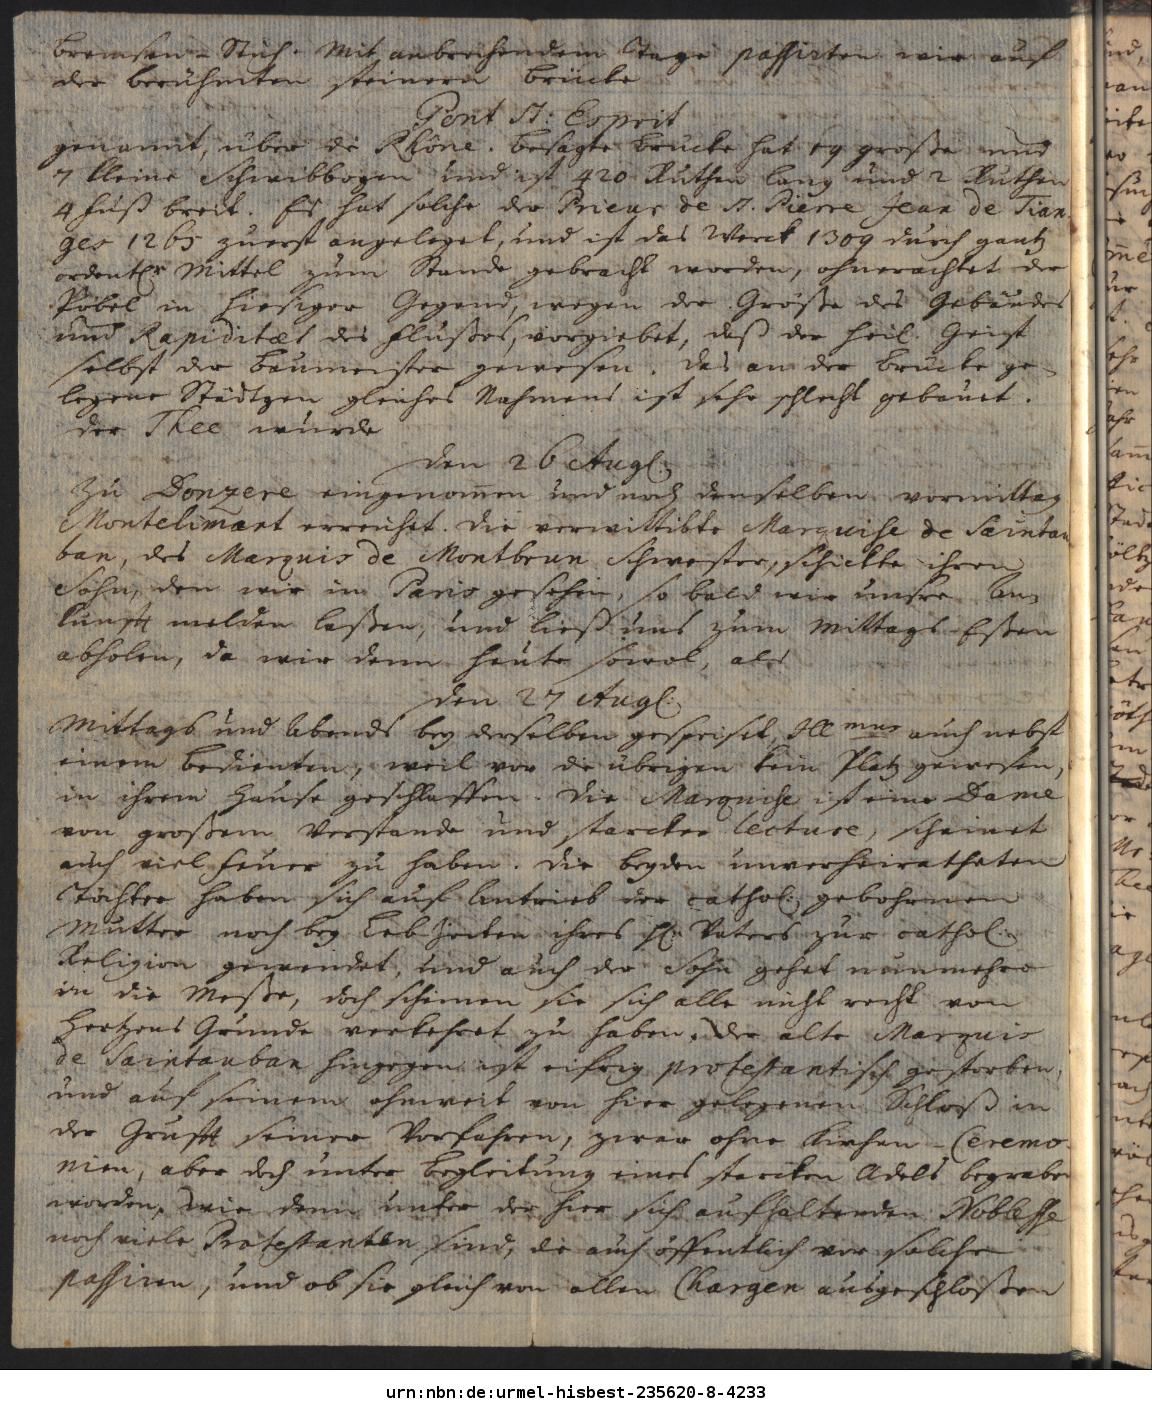 Bremsen-Stich. Mit anbrechendem Tage passirten wir auf
der berühmten steinern Brücke
Pont St: Esprit
genannt, über die Rhône. Besagte Brücke hat 19 große und
7 kleine Schwibbogen und ist 420 Ruthen lang und 2 Ruthen
4 Fuß breit. Es hat solche der Prieur de St. Pierre Jean de Tian-
ges 1265 zuerst angeleget, und ist das Werck 1309 durch gantz
ordentl. Mittel zum Stande gebracht worden, ohnerachtet der
Pöbel in hiesiger Gegend, wegen der Größe des Gebäudes
und Rapiditæt des Flußes, vorgiebet, daß der heil. Geist
selbst der Baumeister gewesen. Das an der Brücke ge-
legene Städtgen gleiches Nahmens ist sehr schlecht gebauet.
der Thee wurde
den 26 Aug.
zu Donzere eingenom̄en und noch denselben vormittag
Montelimart erreichet. Die verwittibte Marquise de Saintau
ban, des Marquis de Montbrun Schwester, schickte ihren
Sohn, den wir in Paris gesehen, so bald wir unsre An-
kunfft melden laßen, und ließ uns zum Mittags-Eßen
abholen, da wir denn heute sowol, als
den 27 Aug.
Mittags und Abends bey derselben gespeiset, Ill mus auch nebst
einem Bedienten, weil vor die übrigen kein Platz gewesen,
in ihrem Hause geschlaffen. Die Marquise ist eine Dame
von großem Verstande und starcker lecture, scheinet
auch viel Feuer zu haben. Die beyden unverheiratheten
Töchter haben sich auf Antrieb der cathol. gebohrnen
Mutter noch bey Lebzeiten ihres H. Vaters zur cathol.
Religion gewendet, und auch der Sohn gehet nunmehro
in die Meße, doch scheinen sie sich alle nicht recht von
Hertzens Grunde verkehret zu haben. Der alte Marquis
de Saintauban hingegen ist eifrig protestantisch gestorben,
und auf seinem ohnweit von hier gelegenen Schloß in
der Grufft seiner Vorfahren, zwar ohne Kirchen-Ceremo-
nien, aber doch unter Begleitung eines starcken Adels begraben
worden, wie denn unter der hier sich aufhaltenden Noblesse
noch viele Protestanten sind, die auch öffentlich vor solche
passiren, und ob sie gleich von allen Chargen ausgeschloßen
urn:nbn:de:urmel-hisbest-235620-8-4233